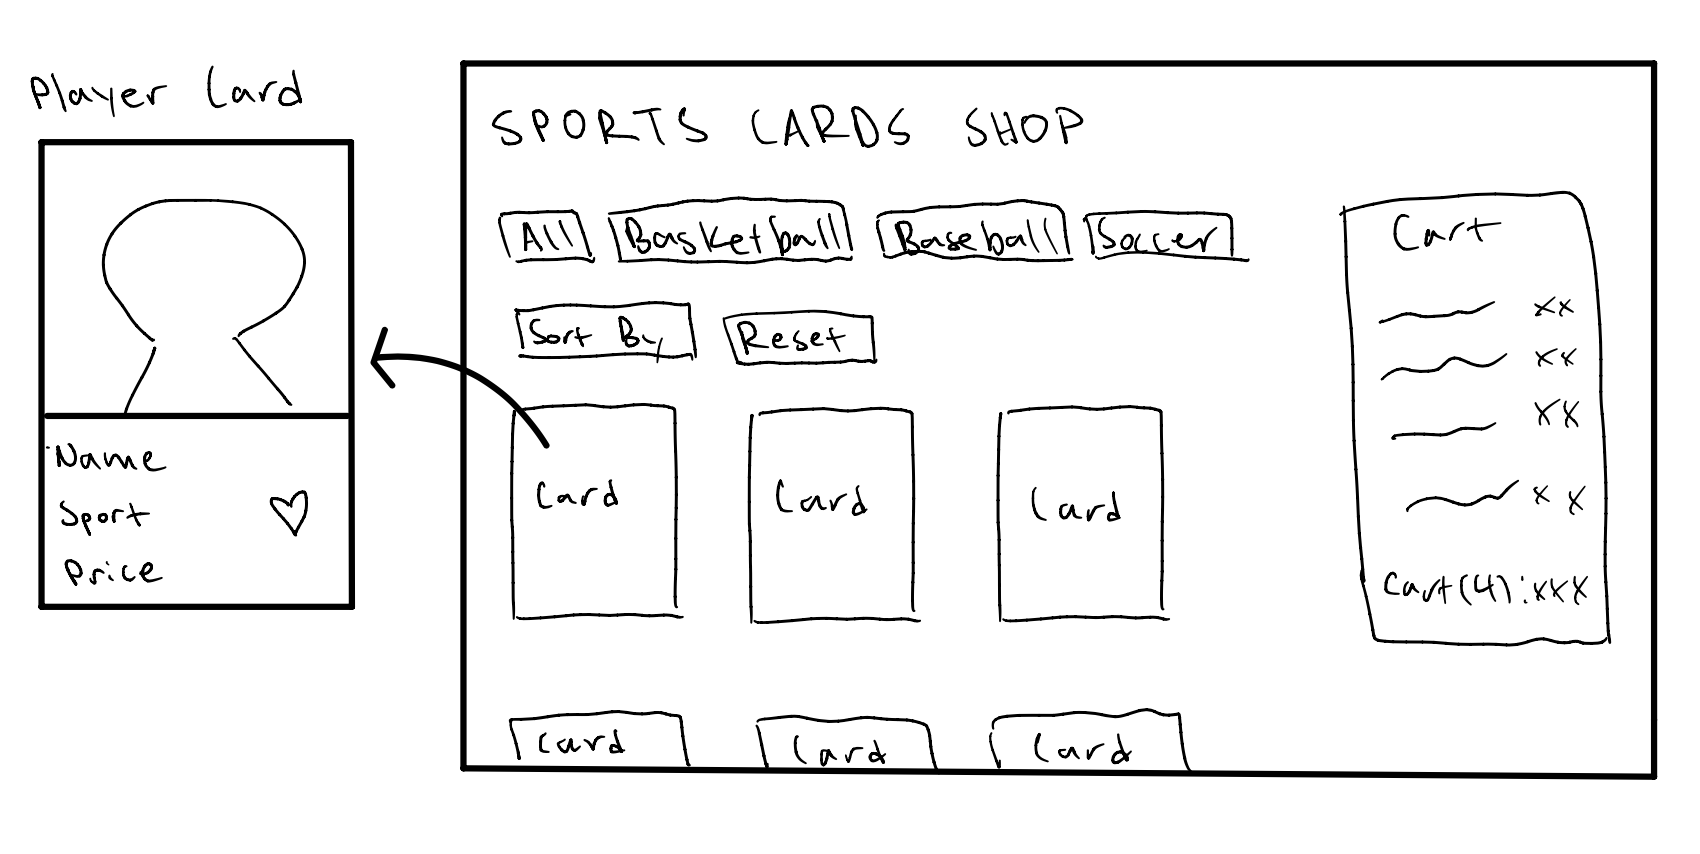 Player Card
Name
Sport
Price
SPORTS CARDS SHOP
All Basketball Baseball Soccer
Sort By Reset
Card Card Card
Card Card Card
Cart
xx
xx
xx
x x
Cart(4):xxx